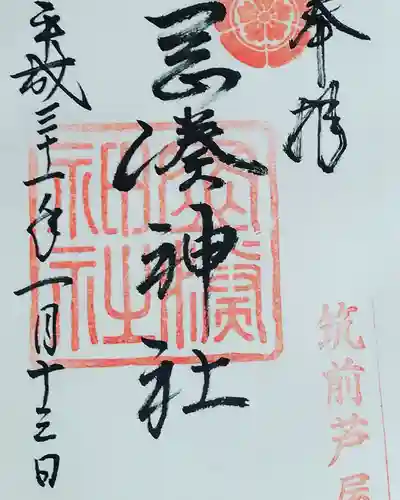 奉拝
岡湊神社
平成三十一年一月十三日
岡湊神社
筑前芦屋